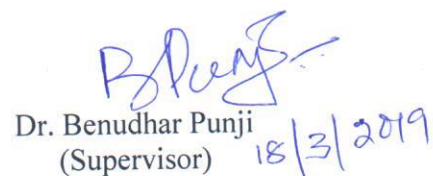 B Punji
Dr. Benudhar Punji
(Supervisor) 18/3/2019